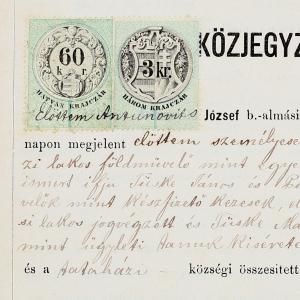 60
k
HATVAN KRAJCZÁR
3 kr.
HÁROM KRAJCZÁR
KÖZJEGYZ
Előttem Antunovits József b.-almási
napon megjelent előttem személyese
zi lakos földmüvelő mint egye
ismert ifju Tüske János és
velők mint készfizető kezesek,
si lakos jogvégzett és Tüske Ma
mint ügyleti tanuk kisérete
és a tataházi – községi összesített